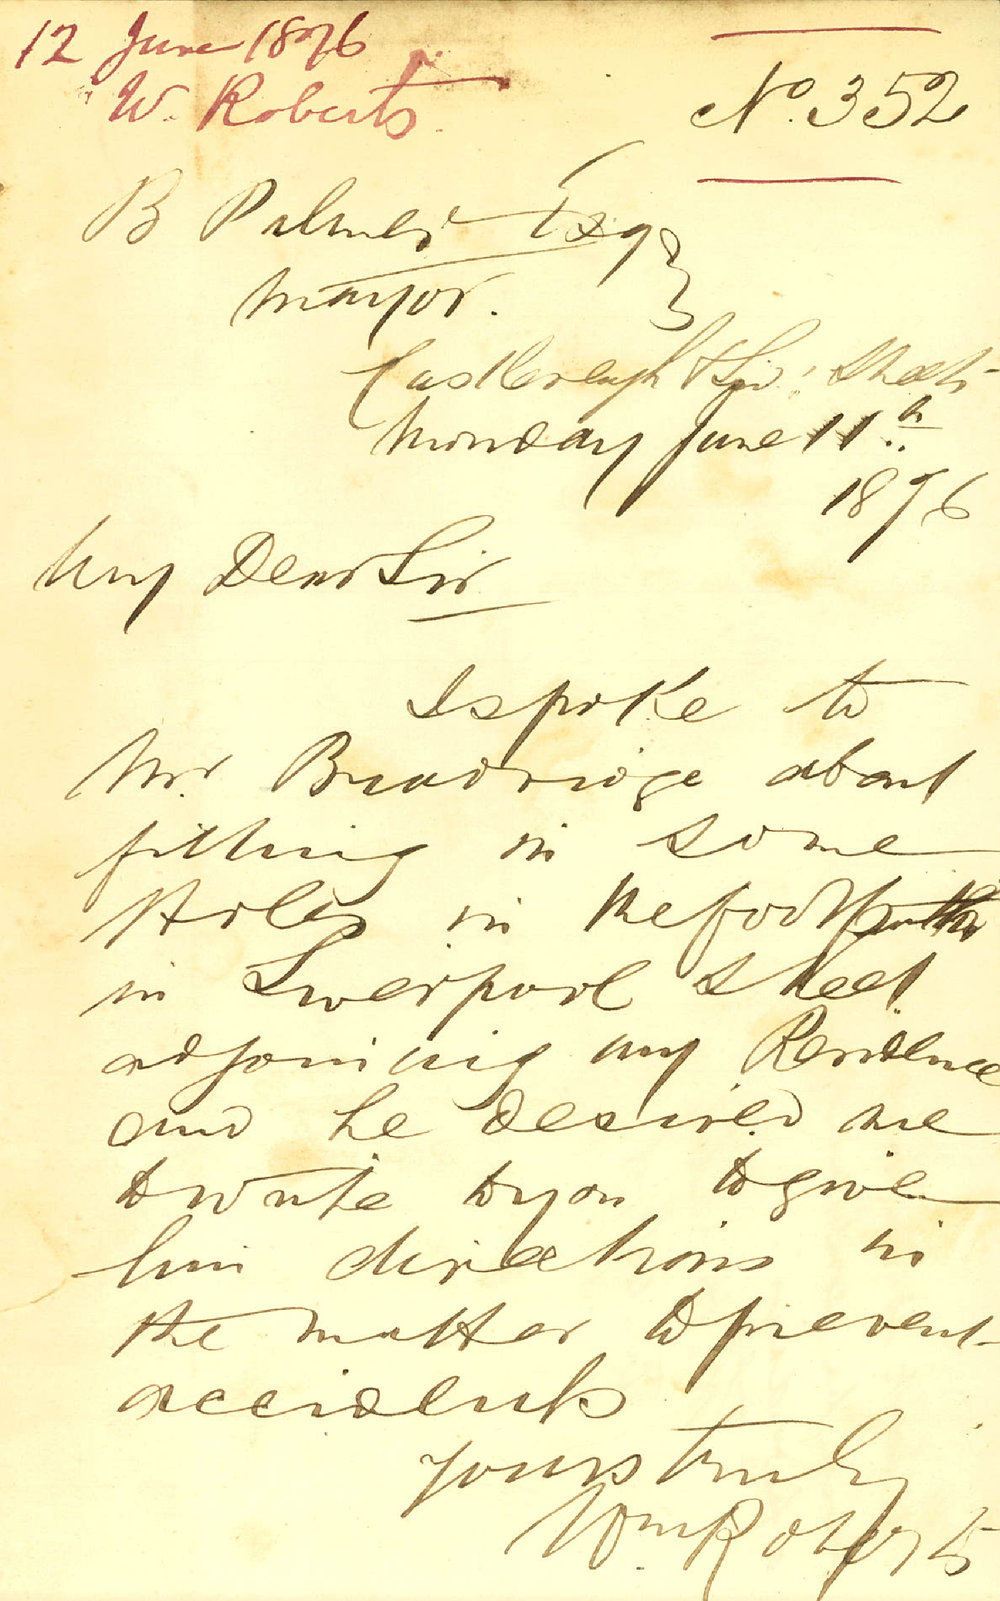 12 June 1876
W. Roberts
No. 352
B Palmer Esq
Mayor.
Castlereagh & Liv: Streets
Monday June 11th
1876
My Dear Sir
I spoke to
Mr. Bradridge about
filling in some
Holes in the footpath
in Liverpool Street
adjoining my Residence
and he desired me
to write to you to give
him directions in
the matter to prevent
accidents
yours truly
Wm Roberts